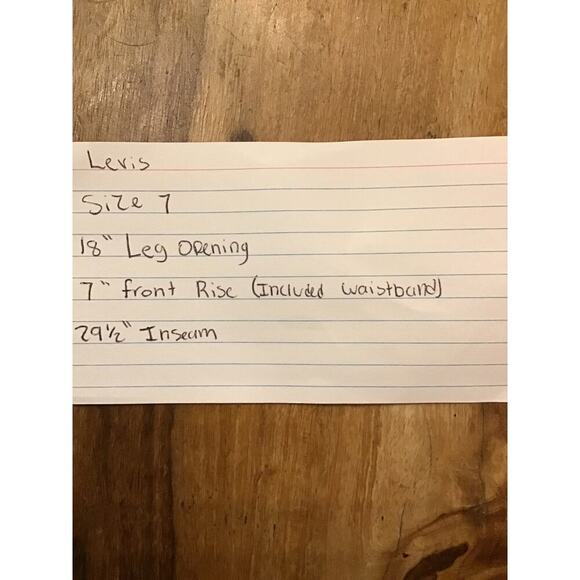 Levis
Size 7
18" Leg opening
7" front Rise (Included waistband)
29 1/2" Inseam